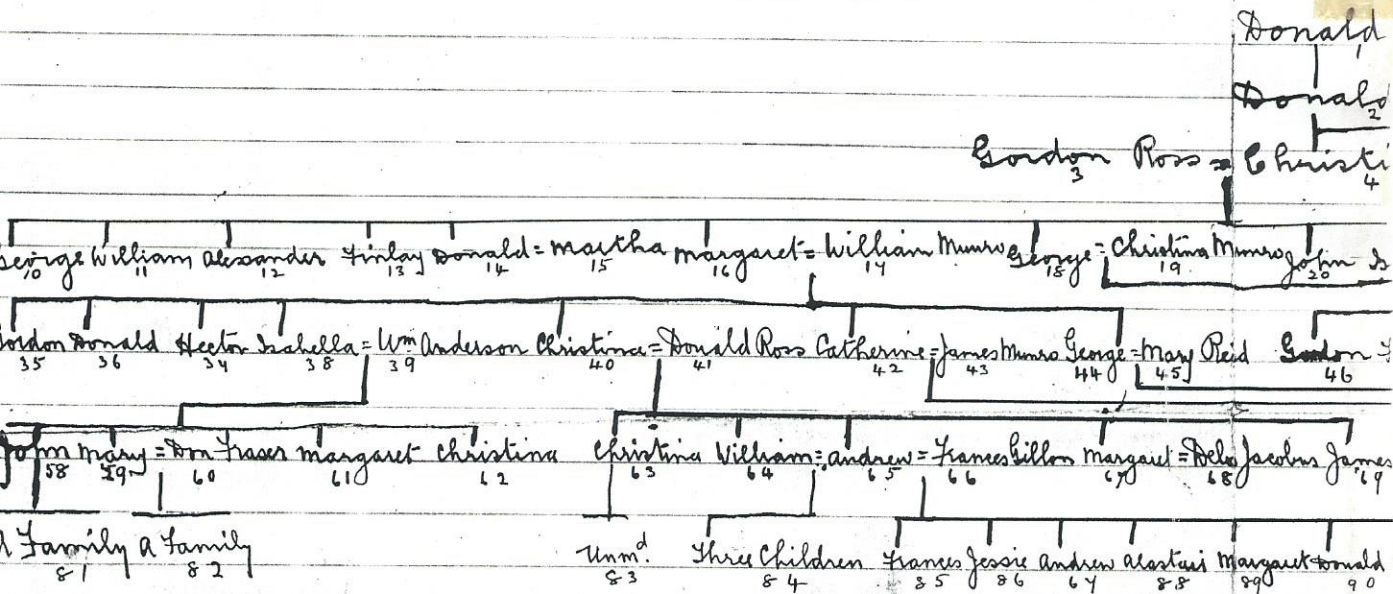 Donald
1
Donald
2
Gordon Ross = Christi
3 4
George William Alexander Finlay Donald = Martha Margaret = William Munro George = Christina Munro John
10 11 12 13 14 15 16 17 18 19 20
Gordon Donald Hector Isabella = Wm Anderson Christina = Donald Ross Catherine = James Munro George = Mary Reid Gordon
35 36 34 38 39 40 41 42 43 44 45 46
John Mary = Don Fraser Margaret Christina Christina William = Andrew = Frances Gillon Margaret = Jacobus James
58 59 60 61 62 63 64 65 66 67 68 69
A Family A Family Unmd. Three Children Frances Jessie Andrew Alastair Margaret Donald
81 82 83 84 85 86 67 88 89 90